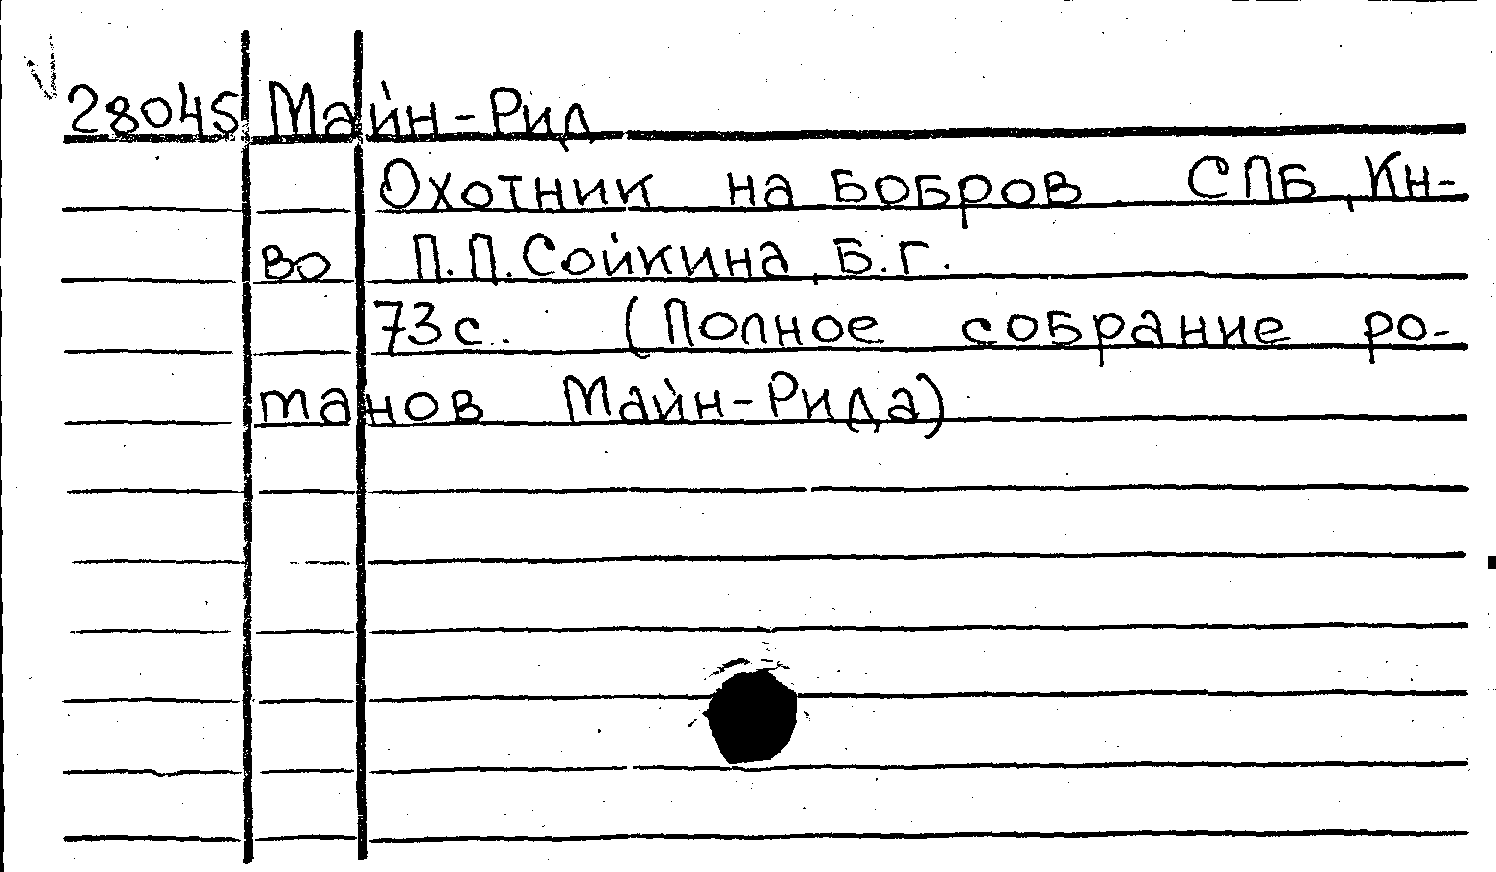 28045 Майн-Рид
Охотник на бобров СПБ, Кн-
во П.П.Сойкина, Б.г.
73с. (Полное собрание ро-
манов Майн-Рида)